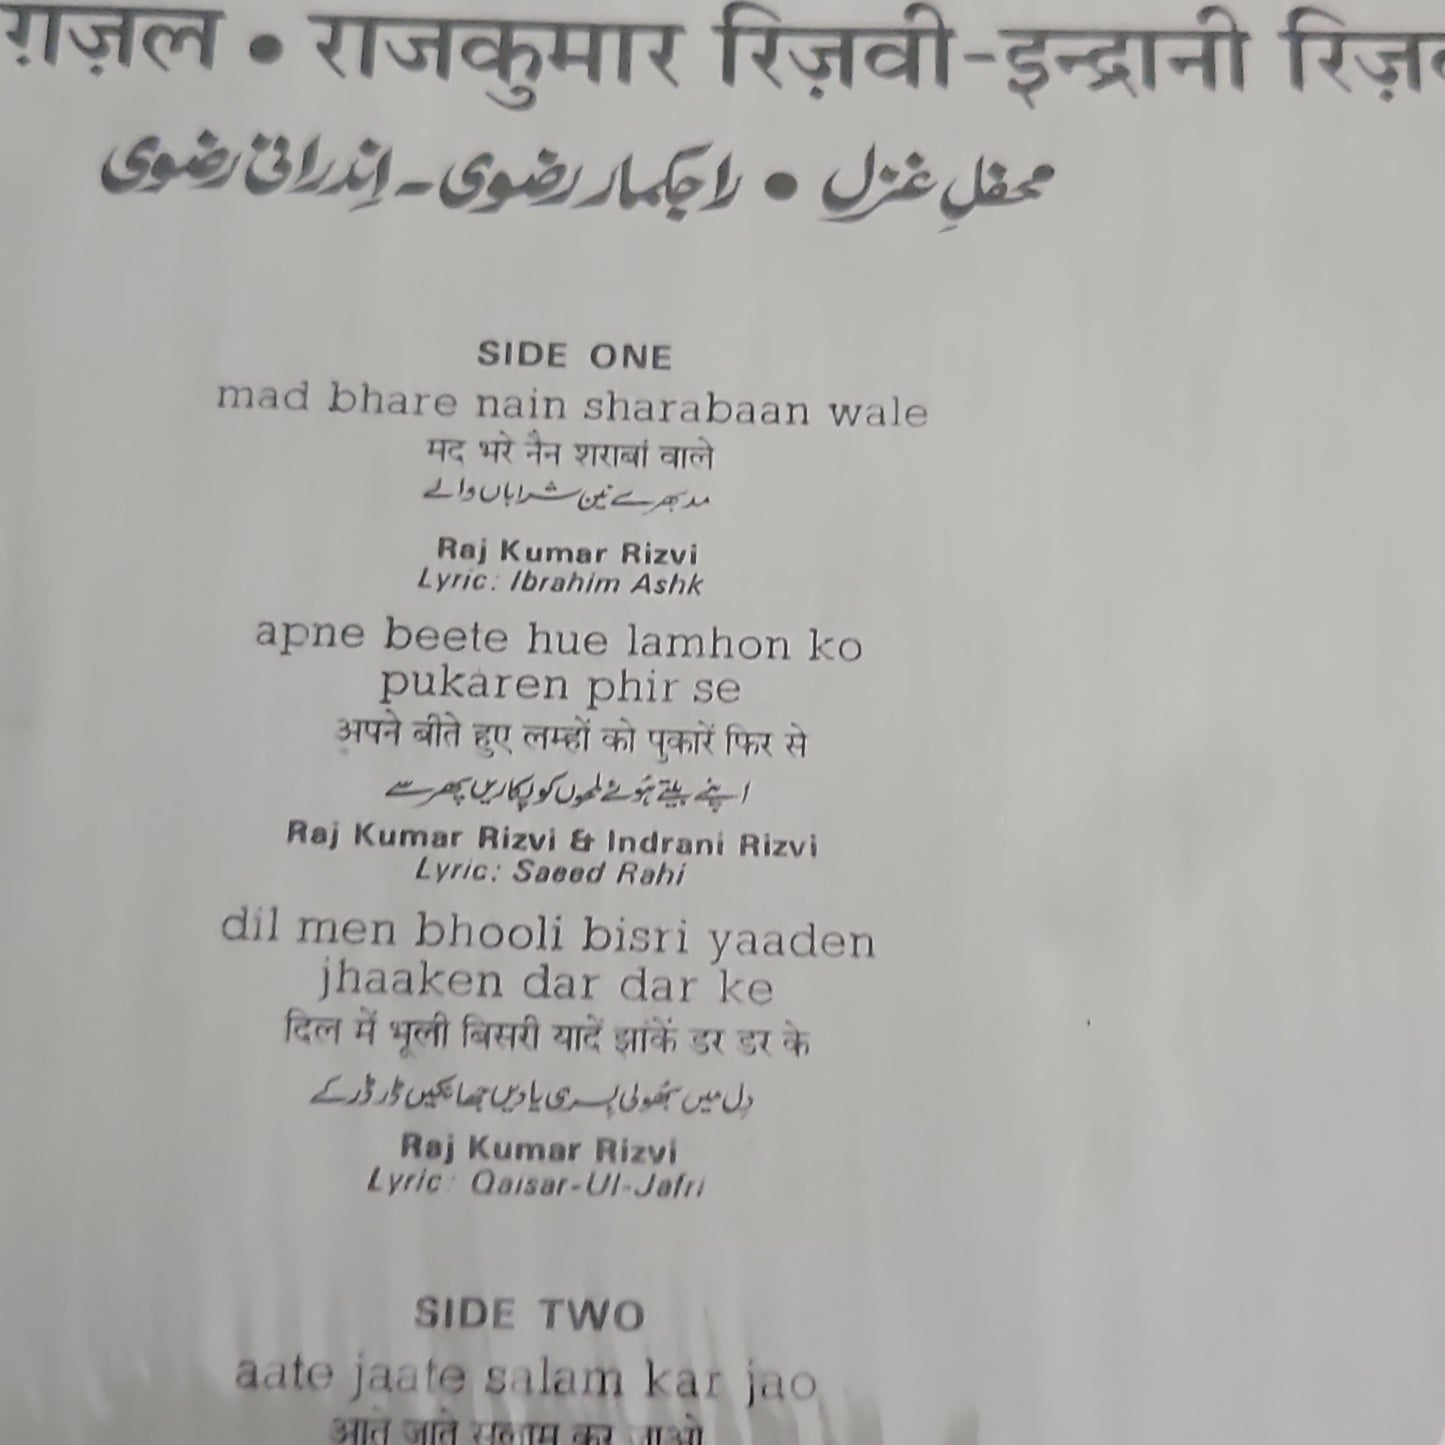 ग़ज़ल • राजकुमार रिज़वी-इन्द्रानी
محفلِ غزل • راجکمار رضوی - اِندرانی رضوی
SIDE ONE
mad bhare nain sharabaan wale
मद भरे नैन शराबां वाले
مدبھرے نین شراباں والے
Raj Kumar Rizvi
Lyric: Ibrahim Ashk
apne beete hue lamhon ko
pukaren phir se
अपने बीते हुए लम्हों को पुकारें फिर से
اپنے بیتے ہوئے لمحوں کو پکاریں پھر سے
Raj Kumar Rizvi & Indrani Rizvi
Lyric: Saeed Rahi
dil men bhooli bisri yaaden
jhaaken dar dar ke
दिल में भूली बिसरी यादें झांकें डर डर के
دِل میں بھُولی بسری یادیں جھانکیں ڈر ڈر کے
Raj Kumar Rizvi
Lyric: Qaisar-Ul-Jafri
SIDE TWO
aate jaate salam kar jao
आते जाते सलाम कर जाओ